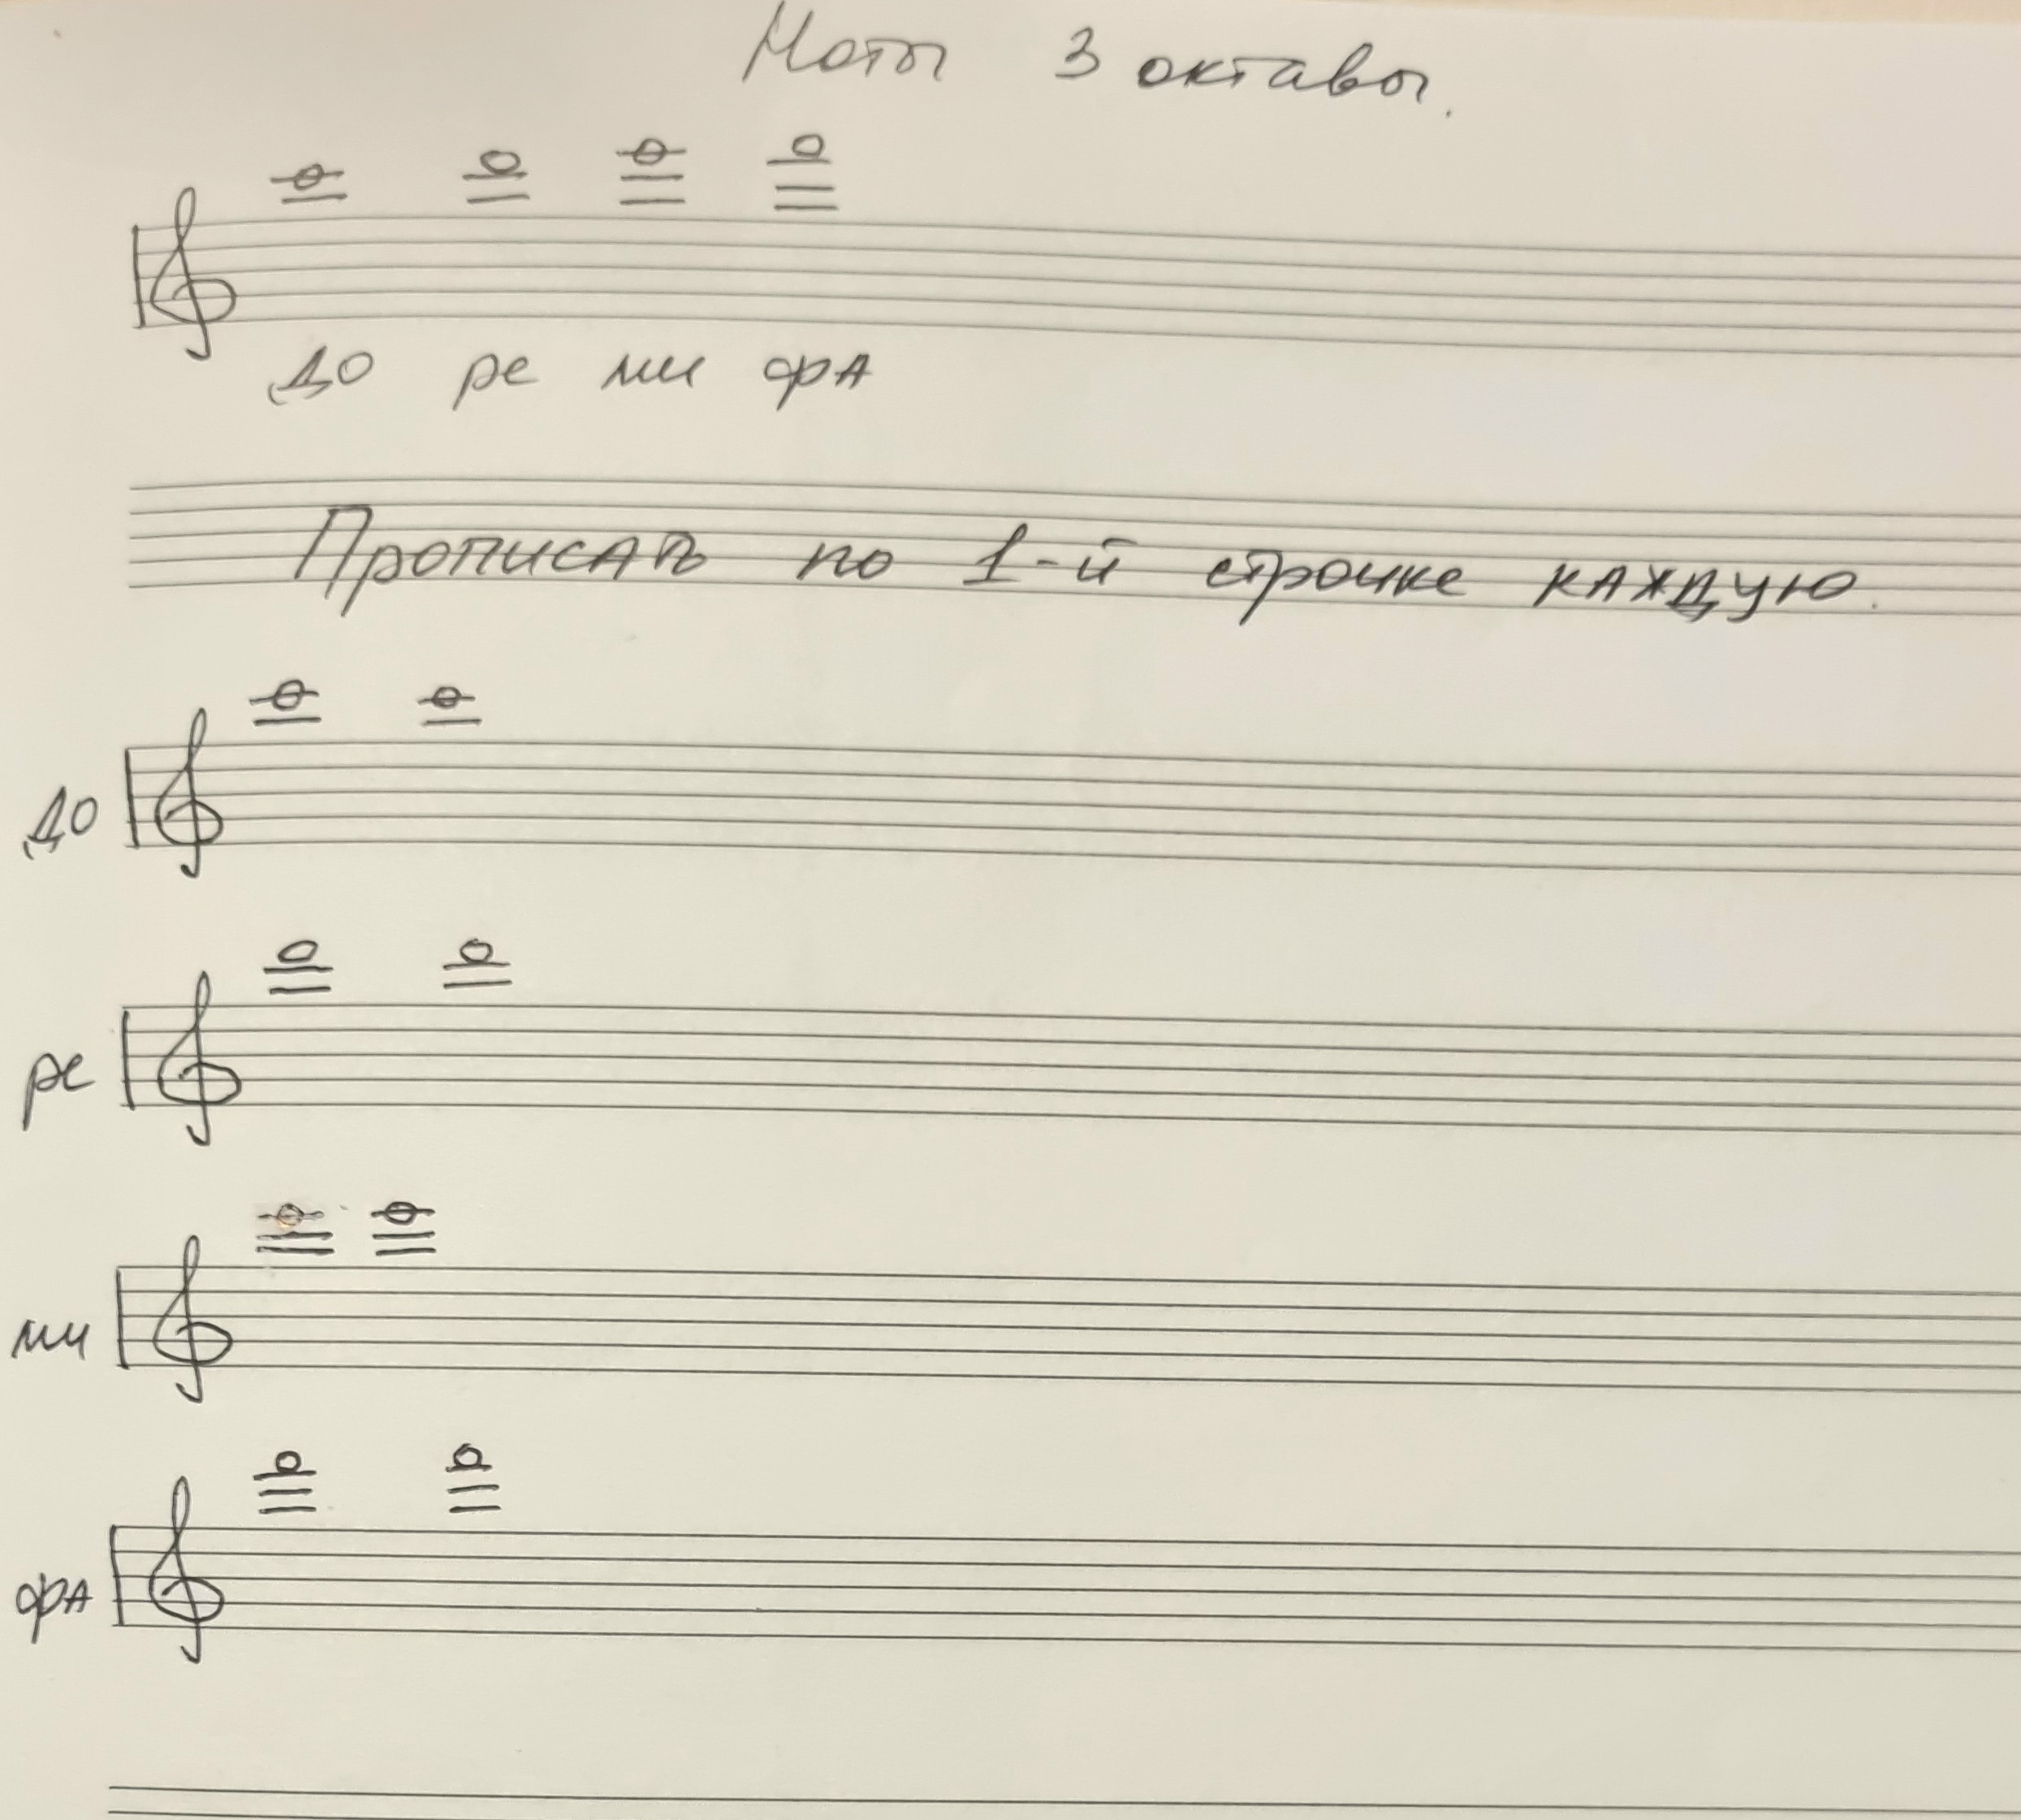 Ноты 3 октавы.
до ре ми фА
Прописать по 1-й строчке каждую.
до
ре
ми
фА